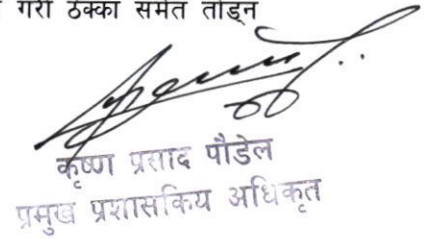 गरी ठेक्का समेत तोड्न
कृष्ण प्रसाद पौडेल
प्रमुख प्रशासकिय अधिकृत